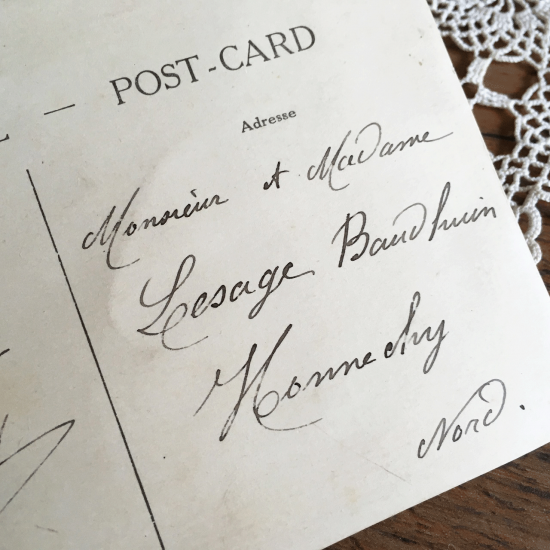 — POST-CARD
Adresse
Monsieur et Madame
Lesage Baudhuin
Honnechy
Nord.